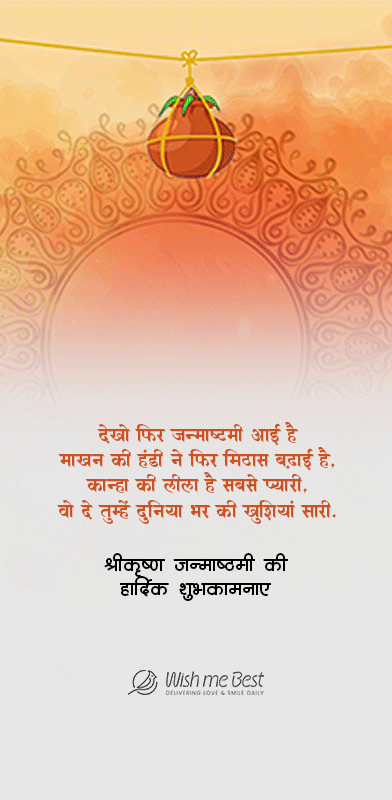 देखो फिर जन्माष्टमी आई है
माखन की हंडी ने फिर मिठास बढ़ाई है,
कान्हा की लीला है सबसे प्यारी,
वो दे तुम्हें दुनिया भर की खुशियां सारी.
श्रीकृष्ण जन्माष्ठमी की
हार्दिक शुभकामनाए
Wish me Best
DELIVERING LOVE & SMILE DAILY